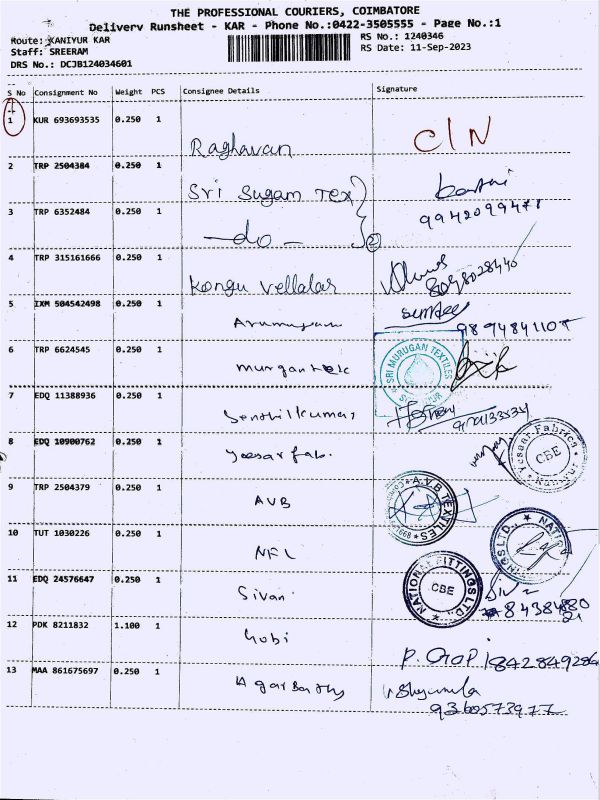 THE PROFESSIONAL COURIERS, COIMBATORE
Delivery Runsheet - KAR - Phone No.:0422-3505555 - Page No.:1
Route: KANIYUR KAR
RS No.: 1240346
Staff: SREERAM
RS Date: 11-Sep-2023
DRS No.: DCJB124034601
S No Consignment No Weight PCS Consignee Details Signature
1 KUR 693693535 0.250 1 Raghavan C/N
2 TRP 2504384 0.250 1 Sri Sugam Tex
3 TRP 6352484 0.250 1 —do— 2
4 TRP 315161666 0.250 1 Kongu Vellalar
5 IXM 504542498 0.250 1 Arumugam
6 TRP 6624545 0.250 1 SRI MURUGAN TEXTILES
7 EDQ 11388936 0.250 1 Senthilkumar
8 EDQ 10900762 0.250 1 Yeesar fab. Yesaar Fabrics CBE
9 TRP 2504379 0.250 1 AVB A.V.B TEXTILES
10 TUT 1030226 0.250 1 NFL
11 EDQ 24576647 0.250 1 Sivan NATIONAL FITTINGS LTD. CBE
12 PDK 8211832 1.100 1 Gobi P. Gopi
13 MAA 861675697 0.250 1 Agarbathy Shyamala
9360573977